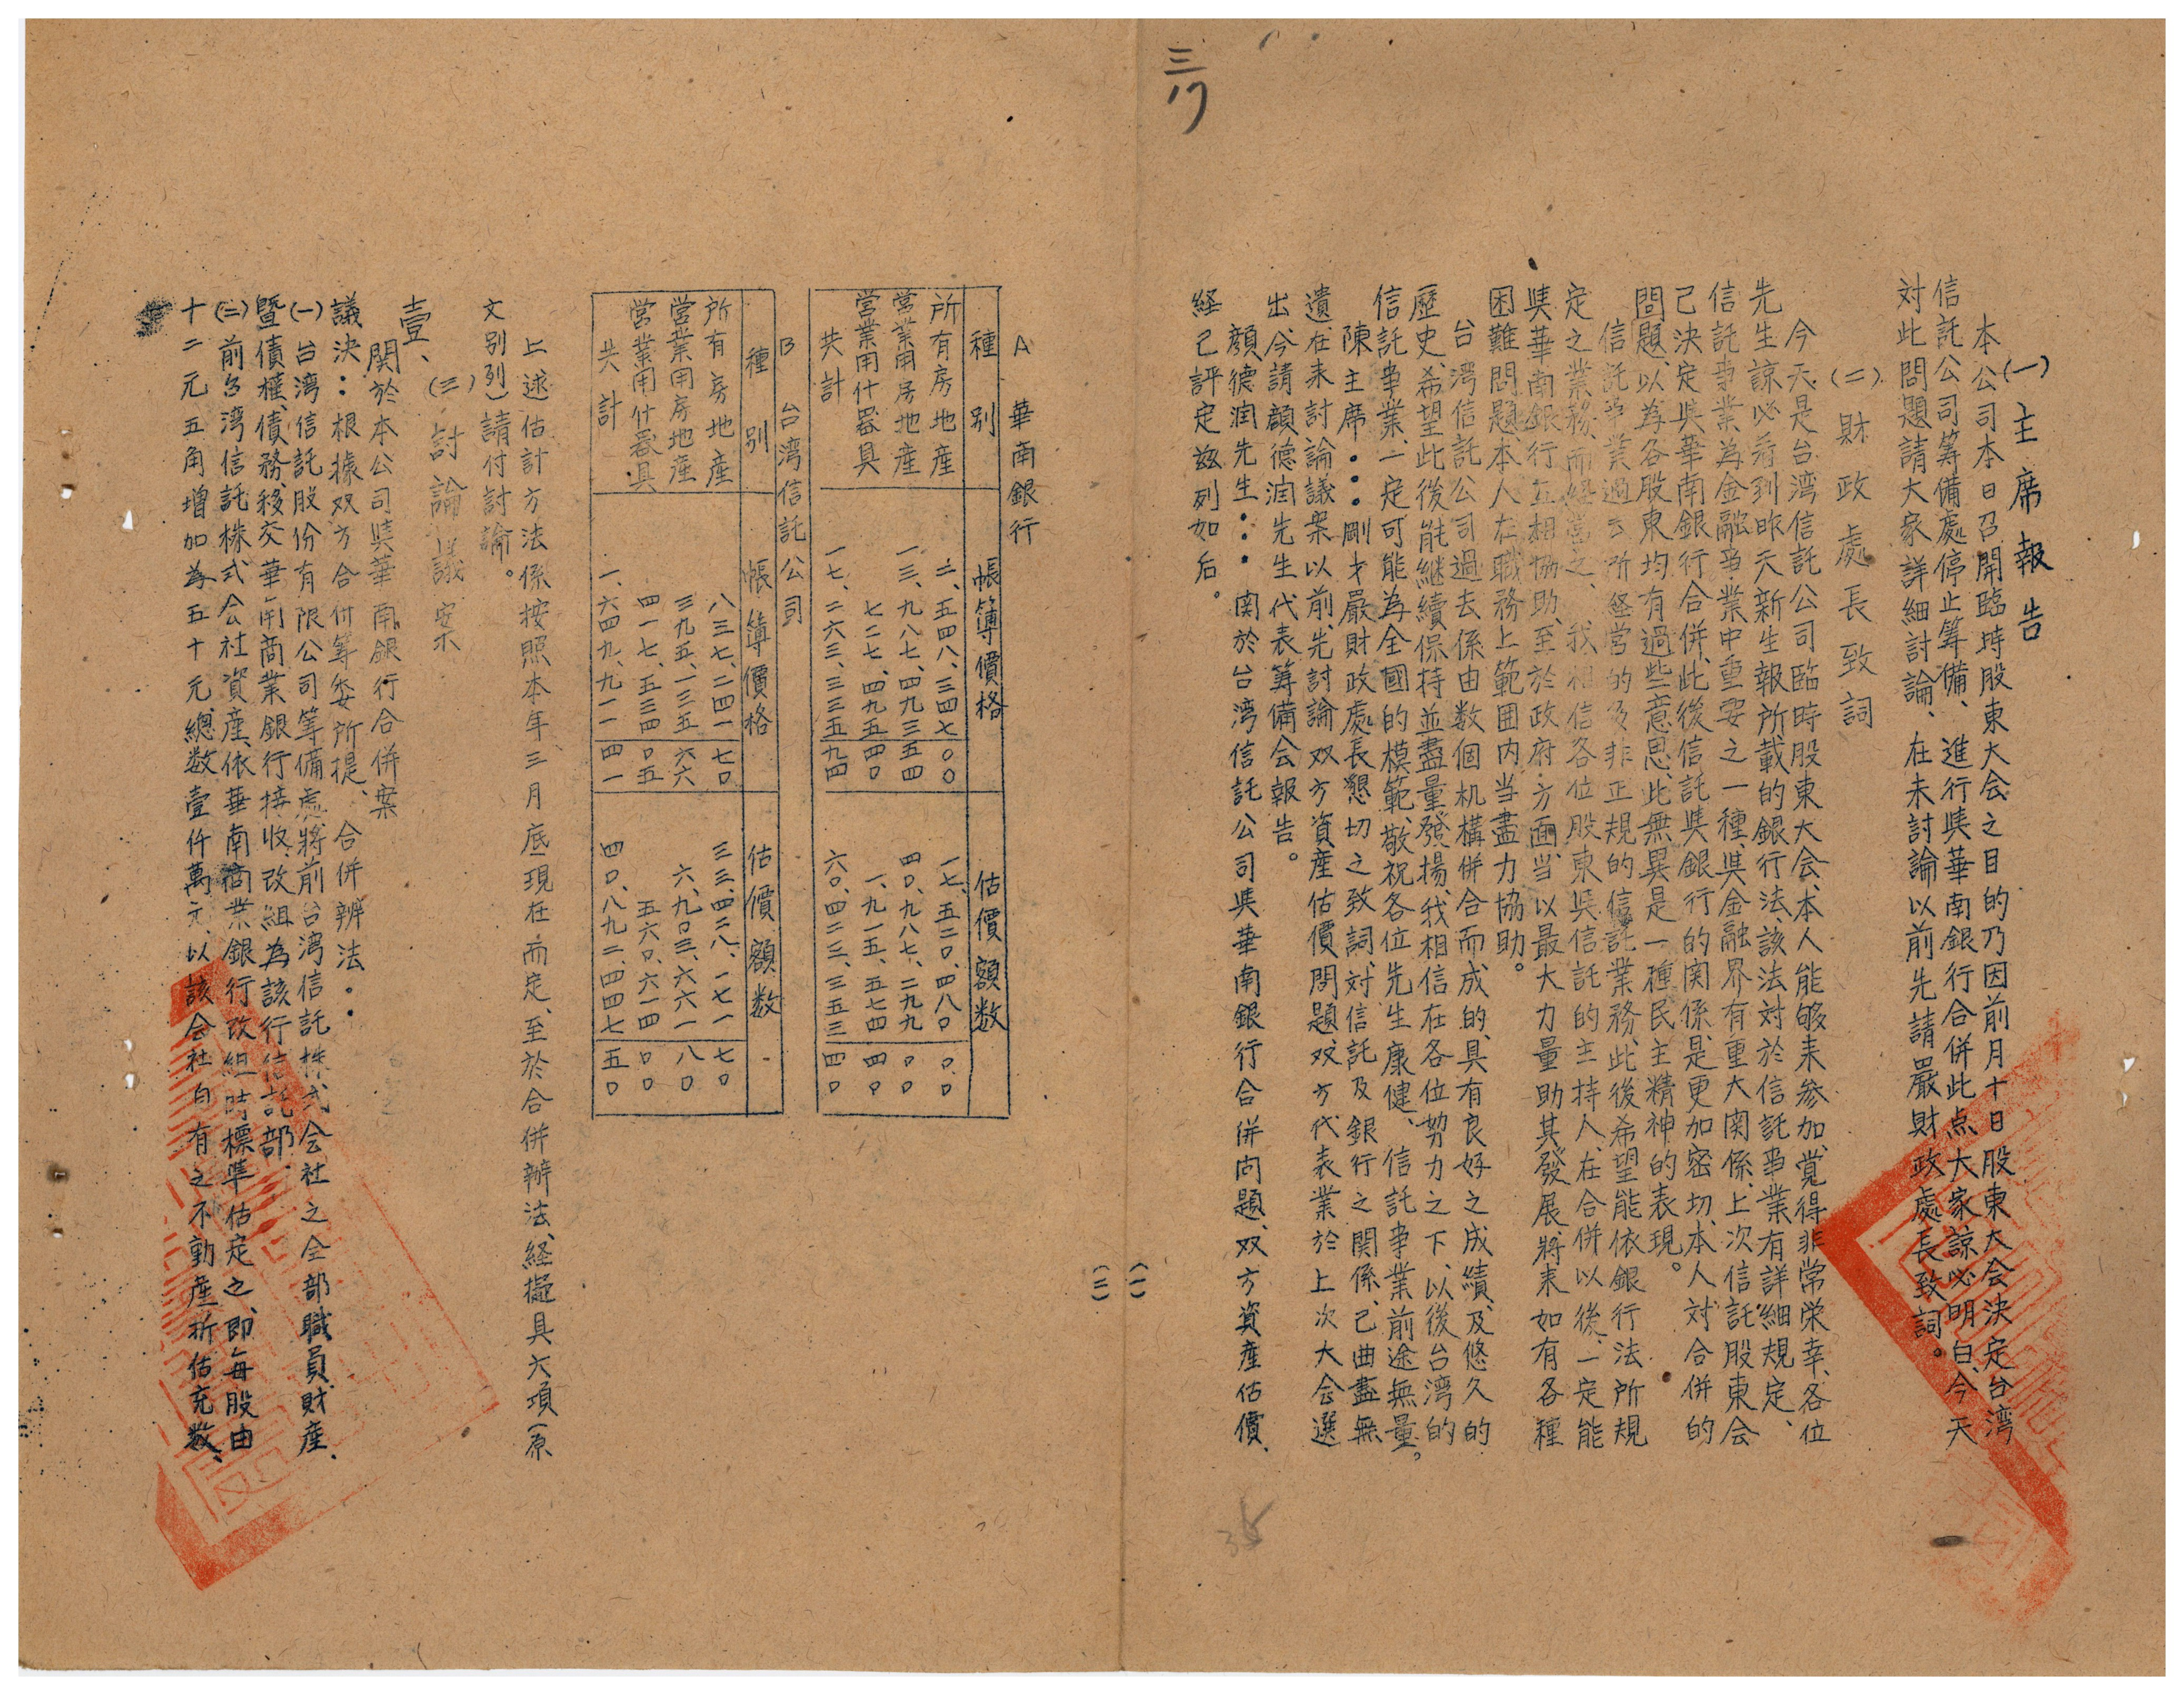 三/17
(一) 主席報告
本公司本日召開臨時股東大会之目的乃因前月十日股東大会決定台湾
信託公司筹備處停止筹備、進行与華南銀行合併此点大家諒必明白、今天
対此問題請大家詳細討論、在未討論以前先請嚴財政處長致詞。
(二) 財政處長致詞
今天是台湾信託公司臨時股東大会、本人能够来参加、覚得非常荣幸、各位
先生諒必看到昨天新生報所載的銀行法、該法対於信託事業有詳細規定、
信託事業為金融事業中重要之一種、与金融界有重大関係、上次信託股東会
己決定与華南銀行合併、此後信託与銀行的関係、是更加密切、本人対合併的
問題、以為各股東均有過些意思、此無異是一種民主精神的表現。
信託事業過去所経営的多非正規的信託業務、此後希望能依銀行法所規
定之業務、而経営之、我相信各位股東与信託的主持人、在合併以後、一定能
与華南銀行互相協助、至於政府方面、当以最大力量助其發展、将来如有各種
困難問題、本人在職務上範囲内当盡力協助。
台湾信託公司過去係由数個机構併合而成的、具有良好之成績、及悠久的
歷史、希望此後能継續保持並盡量發揚、我相信在各位努力之下、以後台湾的
信託事業、一定可能為全國的模範、敬祝各位先生康健、信託事業前途無量。
陳主席：剛才嚴財政處長懇切之致詞、対信託及銀行之関係、己曲盡無
遺、在未討論議案以前、先討論双方資産估價問題、双方代表業於上次大会選
出、今請顔德潤先生代表筹備会報告。
顔德潤先生：関於台湾信託公司与華南銀行合併問題、双方資産估價、
経己評定兹列如后。
(一)
(二)
A 華南銀行
種别 帳簿價格 估價額数
所有房地産 二、五四八、三四七 〇〇 一七、五二〇、四八〇 〇〇
営業用房地産 一三、九八七、四九三 五四 四〇、九八七、二九九 〇〇
営業用什器具 七二七、四九五 四〇 一、九一五、五七四 四〇
共計 一七、二六三、三三五 九四 六〇、四二三、三五三 四〇
B 台湾信託公司
種别 帳簿價格 估價額数
所有房地産 八三七、二四一 七〇 三三、四二八、一七一 七〇
営業用房地産 三九五、一三五 六六 六、九〇三、六六一 八〇
営業用什器具 四一七、五三四 〇五 五六〇、六一四 〇〇
共計 一、六四九、九一一 四一 四〇、八九二、四四七 五〇
上述估計方法係按照本年三月底現在而定、至於合併辦法、経擬具六項(原
文别列)請付討論。
(三) 討論議案
壹、関於本公司与華南銀行合併案
議決：根據双方合併筹委所提、合併辦法：
(一) 台湾信託股份有限公司筹備處、將前台湾信託株式会社之全部職員、財産、
暨債權、債務、移交華南商業銀行接收、改組為該行信託部.
(二) 前台湾信託株式会社資産、依華南商業銀行改組時標準估定之、即每股由
十二元五角増加為五十元、總数壹仟萬元、以該会社自有之不動産折估充数、